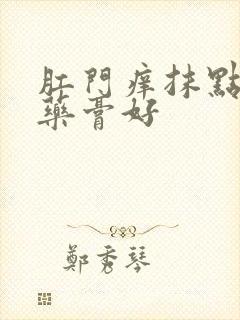 肛門痒抹點
藥膏好
鄭秀琴